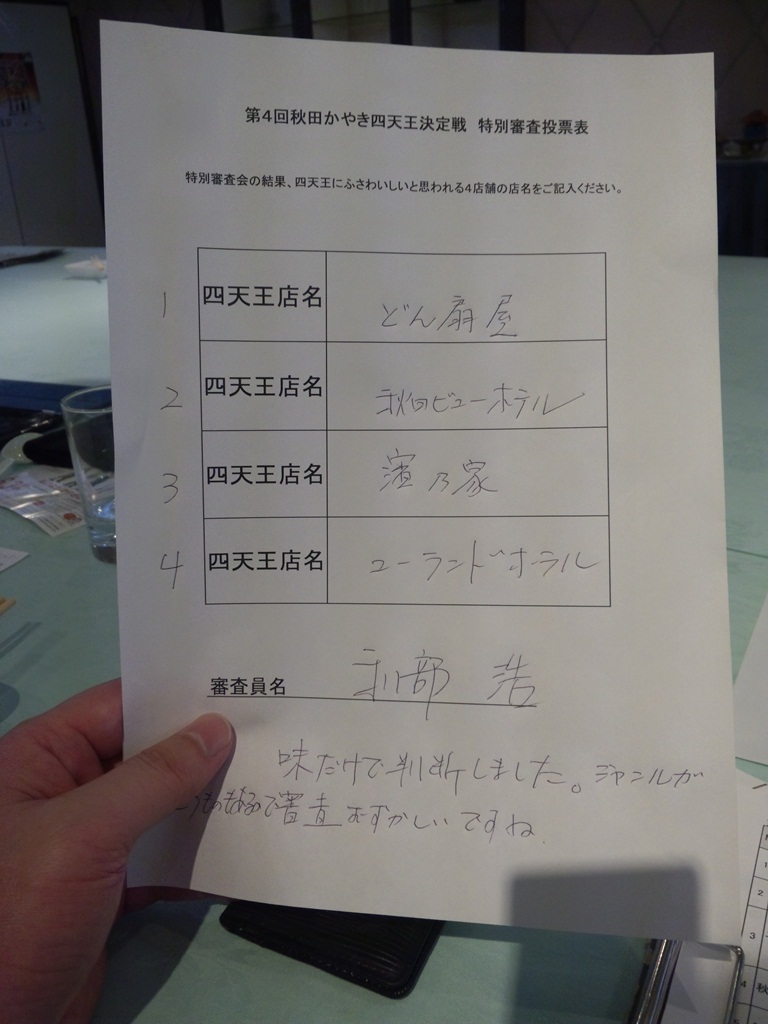 第4回秋田かやき四天王決定戦 特別審査投票表
特別審査会の結果、四天王にふさわいしいと思われる4店舗の店名をご記入ください。
1 四天王店名 どん扇屋
2 四天王店名 秋田ビューホテル
3 四天王店名 濱乃家
4 四天王店名 ユーランドホテル
審査員名 刑部 浩
味だけで判断しました。ジャンルが
審査むずかしいですね
1
2
3
4 秋